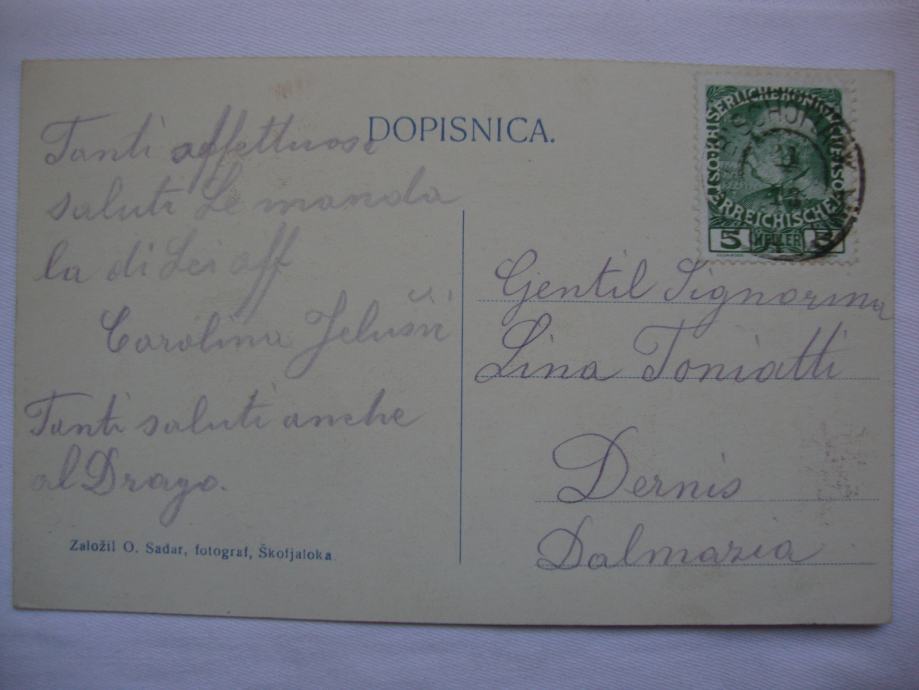 DOPISNICA.
Tanti affettuosi
saluti Le manda
la di Lei aff
Carolina Jelušić
Tanti saluti anche
al Drago.
Založil O. Sadar, fotograf, Škofjaloka
KAISERLICHEKÖNIGLICHE
ÖSTERREICHISCHE
5 HELLER 5
Gentil Signorina
Lina Toniatti
Dernis
Dalmazia